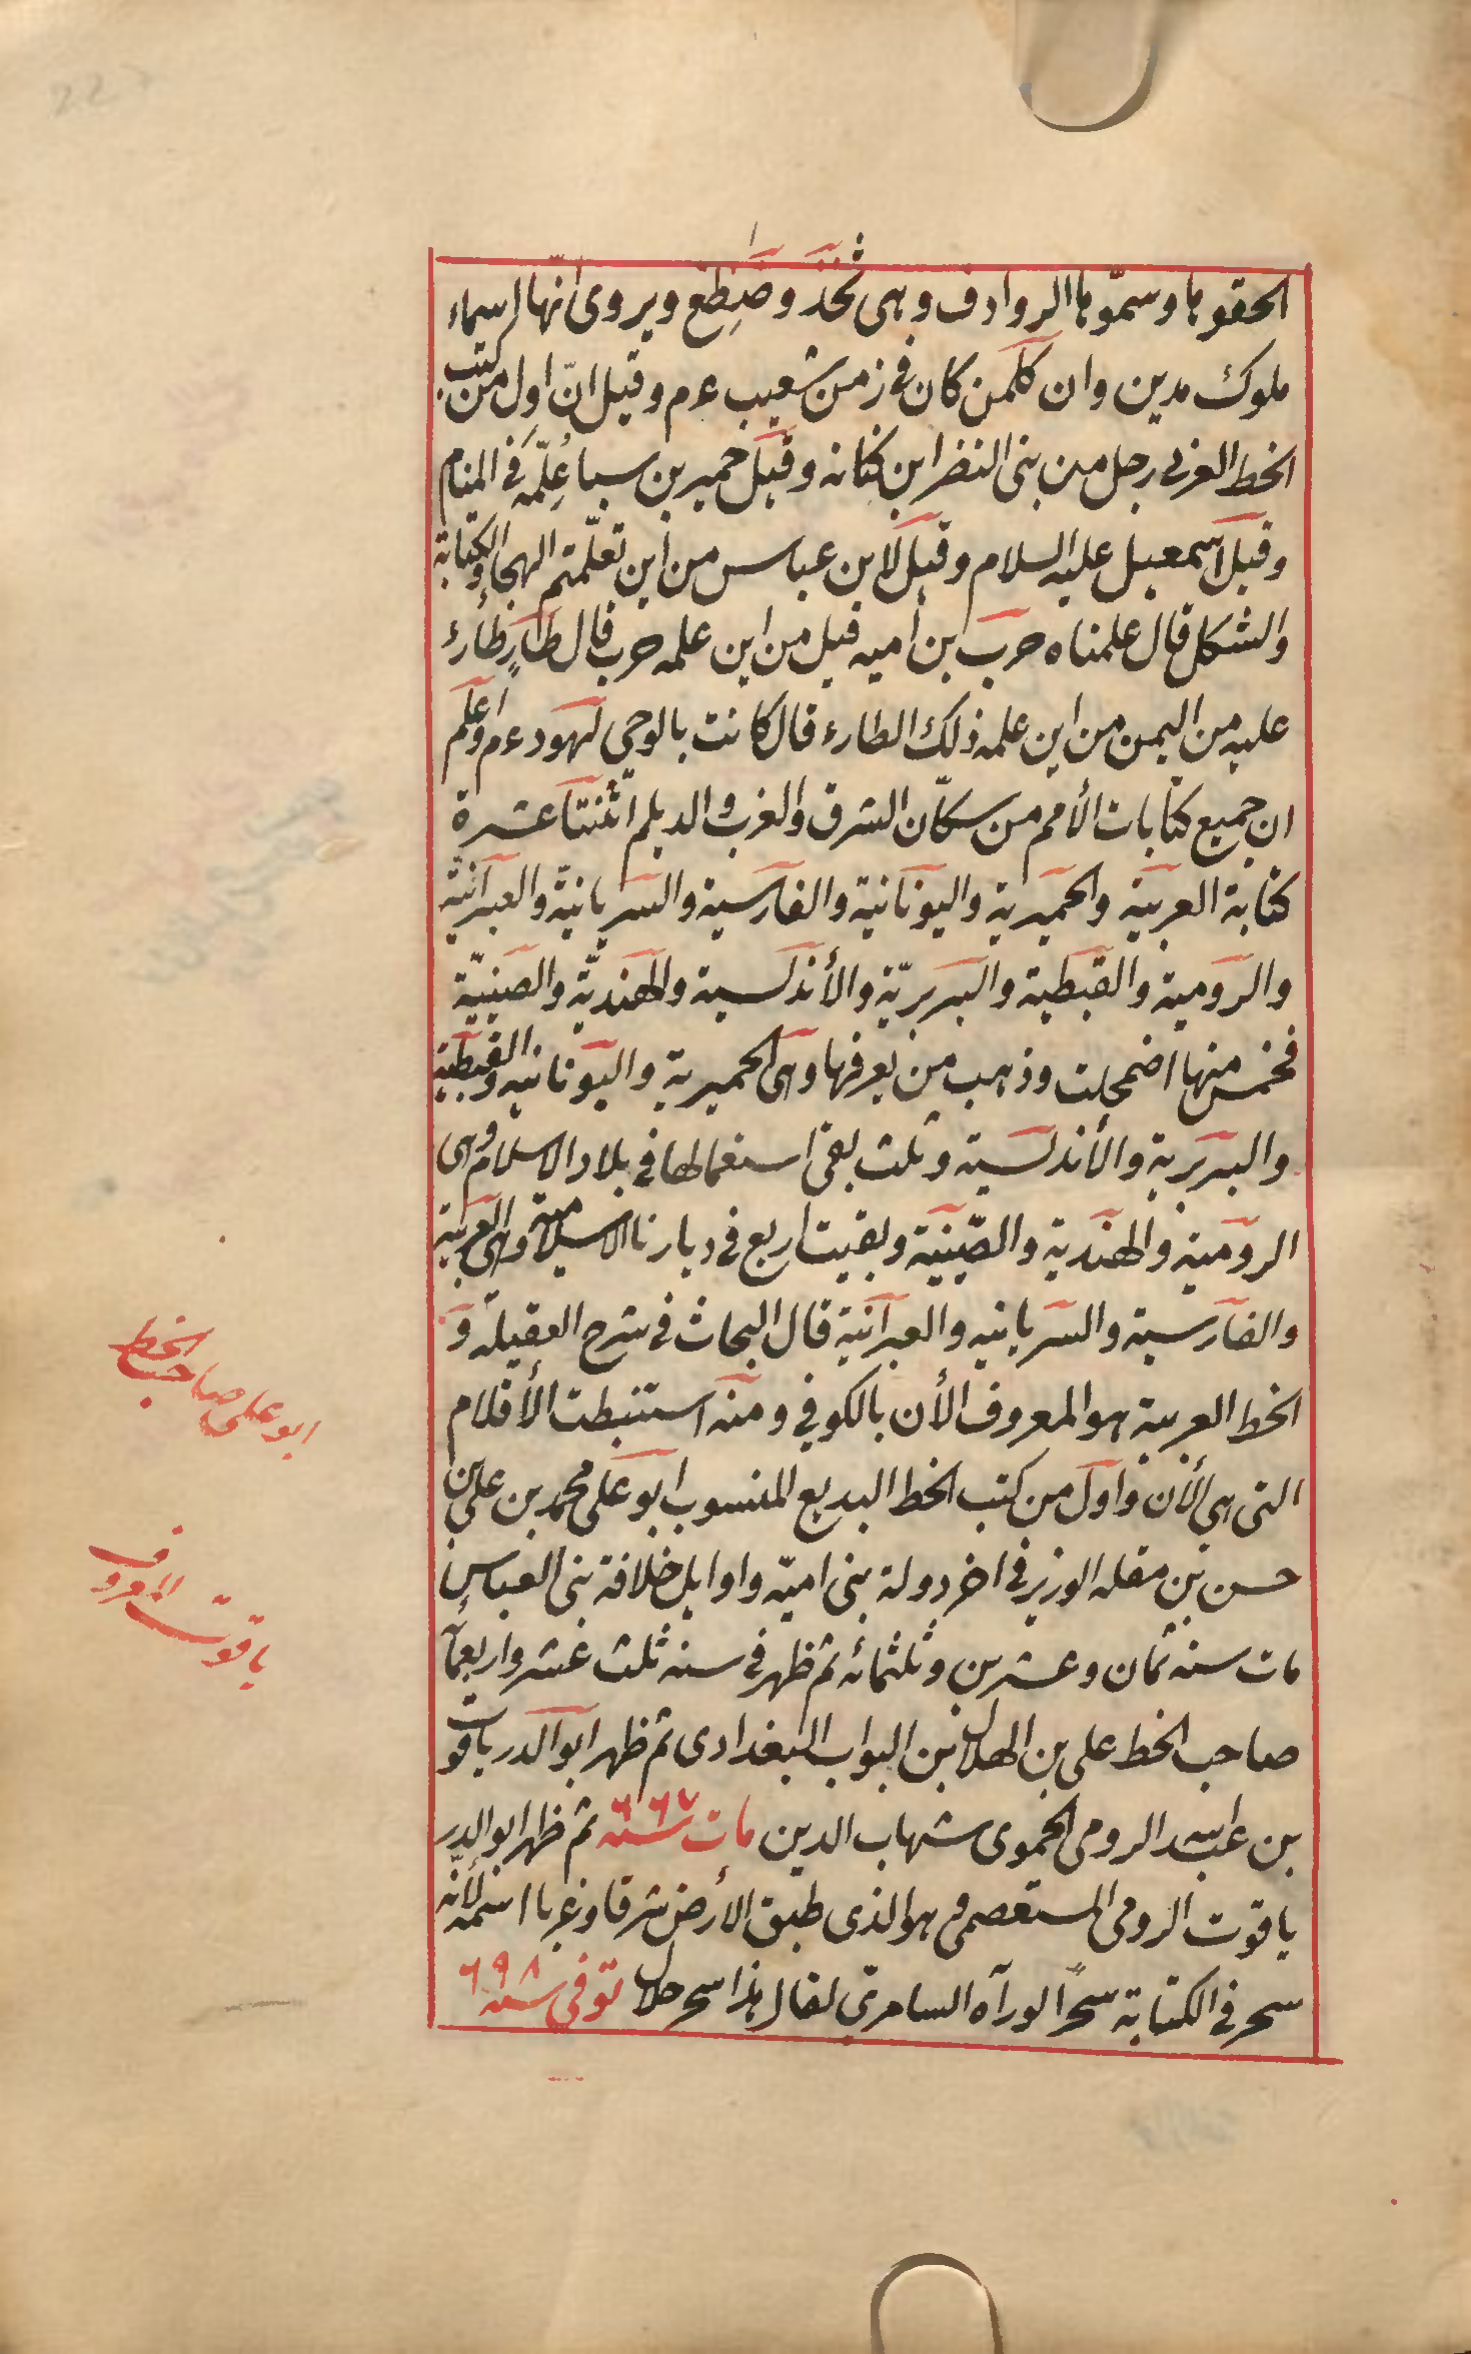 الحقوها وسمّوها الروادف وهى ثخذ وضظغ ويروى انّها اسماء
ملوك مدين وان كلمن كان فى زمن شعيب عم وقيل انّ اول من كتب
الخط العربى رجل من بنى النضر ابن كنانه وقيل حمير بن سبا عُلّمه فى المنام
وقيل اسمعيل عليه السلام وقيل لابن عباس من أين تعلّمتم الهجا والكتابة
والشكل قال علمناه حرب بن أميه قيل من اين علمه حرب قال طارٍ طارء
عليه من اليمن من اين علمه ذلك الطارء قال كانت بالوحى لهود عم واعلم
ان جميع كتابات الأمم من سكّان الشرق والغرب والديلم اثنتا عشرة
كتابة العربية والحميرية واليونانية والفارسية والسريانيّة والعبرانيّة
والرومية والقبطية والبربريّة والأندلسية والهنديّة والصينيّة
فخمس منها اضمحلت وذهب من يعرفها وهى الحميرية واليونانيه والقبطية
والبربرية والأندلسيّة وثلث بقى استعمالها فى بلاد الاسلام وهى
الروميه والهندية والصّينيّة وبقيت اربع فى ديارنا الاسلاميّة وهى العربية
والفارسية والسريانيه والعبرانيّة قال البحاث فى شرح العقيلة و
الخط العربية هو المعروف الأن بالكوفي ومنه استنبطت الأقلام
التى هى الأن واول من كتب الخط البديع المنسوب ابو على محمد بن على بن
حسن بن مقله الوزير فى اخر دولة بنى اميّه واوايل خلافة بنى العباس
مات سنه ثمان وعشرين وثلثمائه ثم ظهر فى سنه ثلث عشر واربعمآ
صاحب الخط على بن الهلال بن البواب البغدادى ثم ظهر ابو الدر ياقوت
بن عبد الرومى الحموى شهاب الدين مات سنه ٦٦٧ ثم ظهر ابو الدر
ياقوت الرومى المستعصمى هو الذى طبق الأرض شرقا وغربا اسمه لأنّه
سحر فى الكتابة سحرًا لو رآه السامرى لقال هذا سحر حلال توفى سنه ٦٩٨
ابو على صاحب الخط
ياقوت المعروف